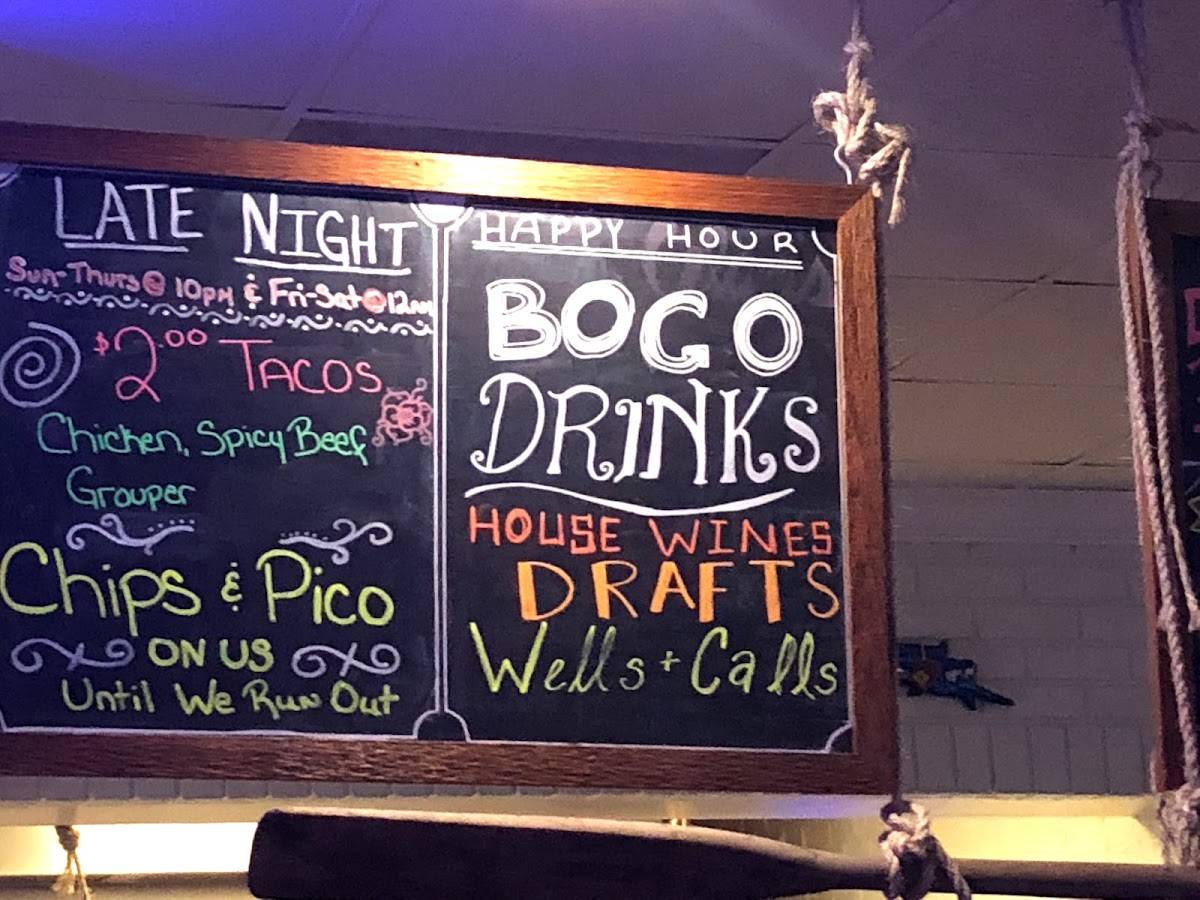 LATE NIGHT
Sun-Thurs@ 10PM & Fri-Sat@12AM
$2.00 TACOS
Chicken, Spicy Beef
Grouper
Chips & Pico
ON US
Until We Run Out
HAPPY HOUR
BOGO
DRINKS
HOUSE WINES
DRAFTS
Wells + Calls